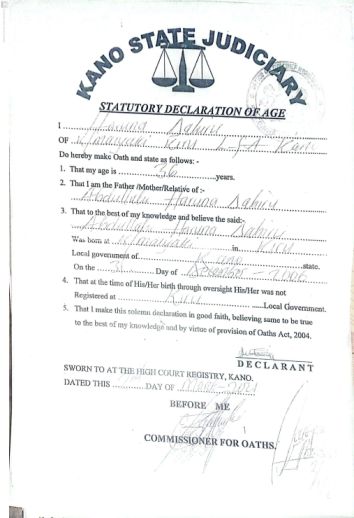 KANO STATE JUDICIARY
STATUTORY DECLARATION OF AGE
I Haruna Sabiru
OF Kiru L.G.A Kano
Do hereby make Oath and state as follows: -
1. That my age is 36 years.
2. That I am the Father /Mother/Relative of :-
Abdullahi Haruna Sabiru
3. That to the best of my knowledge and believe the said:-
Abdullahi Haruna Sabiru
Was born at in Kiru
Local government of Kano state.
On the 31 Day of December - 2006
4. That at the time of His/Her birth through oversight His/Her was not
Registered at Kiru Local Government.
5. That I make this solemn declaration in good faith, believing same to be true
to the best of my knowledge and by virtue of provision of Oaths Act, 2004.
DECLARANT
SWORN TO AT THE HIGH COURT REGISTRY, KANO.
DATED THIS DAY OF
BEFORE ME
COMMISSIONER FOR OATHS.